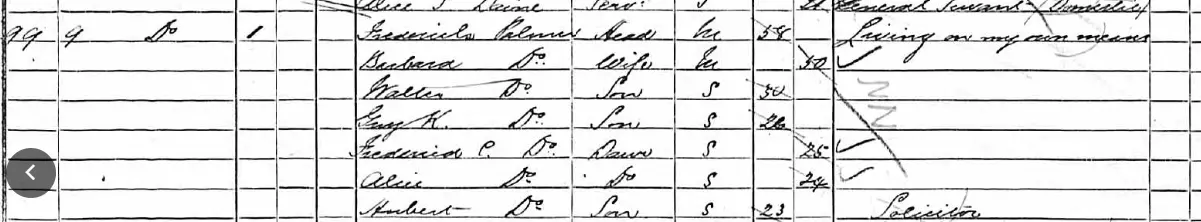 Alice S. Daine Serv. S 21 General Servant (Domestic)
99 9 Do 1 Frederick Palmer Head M 58 Living on my own means
Barbara Do. Wife M 50
Walter Do Son S 30
Guy K. Do. Son S 26
Frederica C. Do. Daur S 25
Alice Do. Do S 24
Herbert Do Son S 23 Solicitor